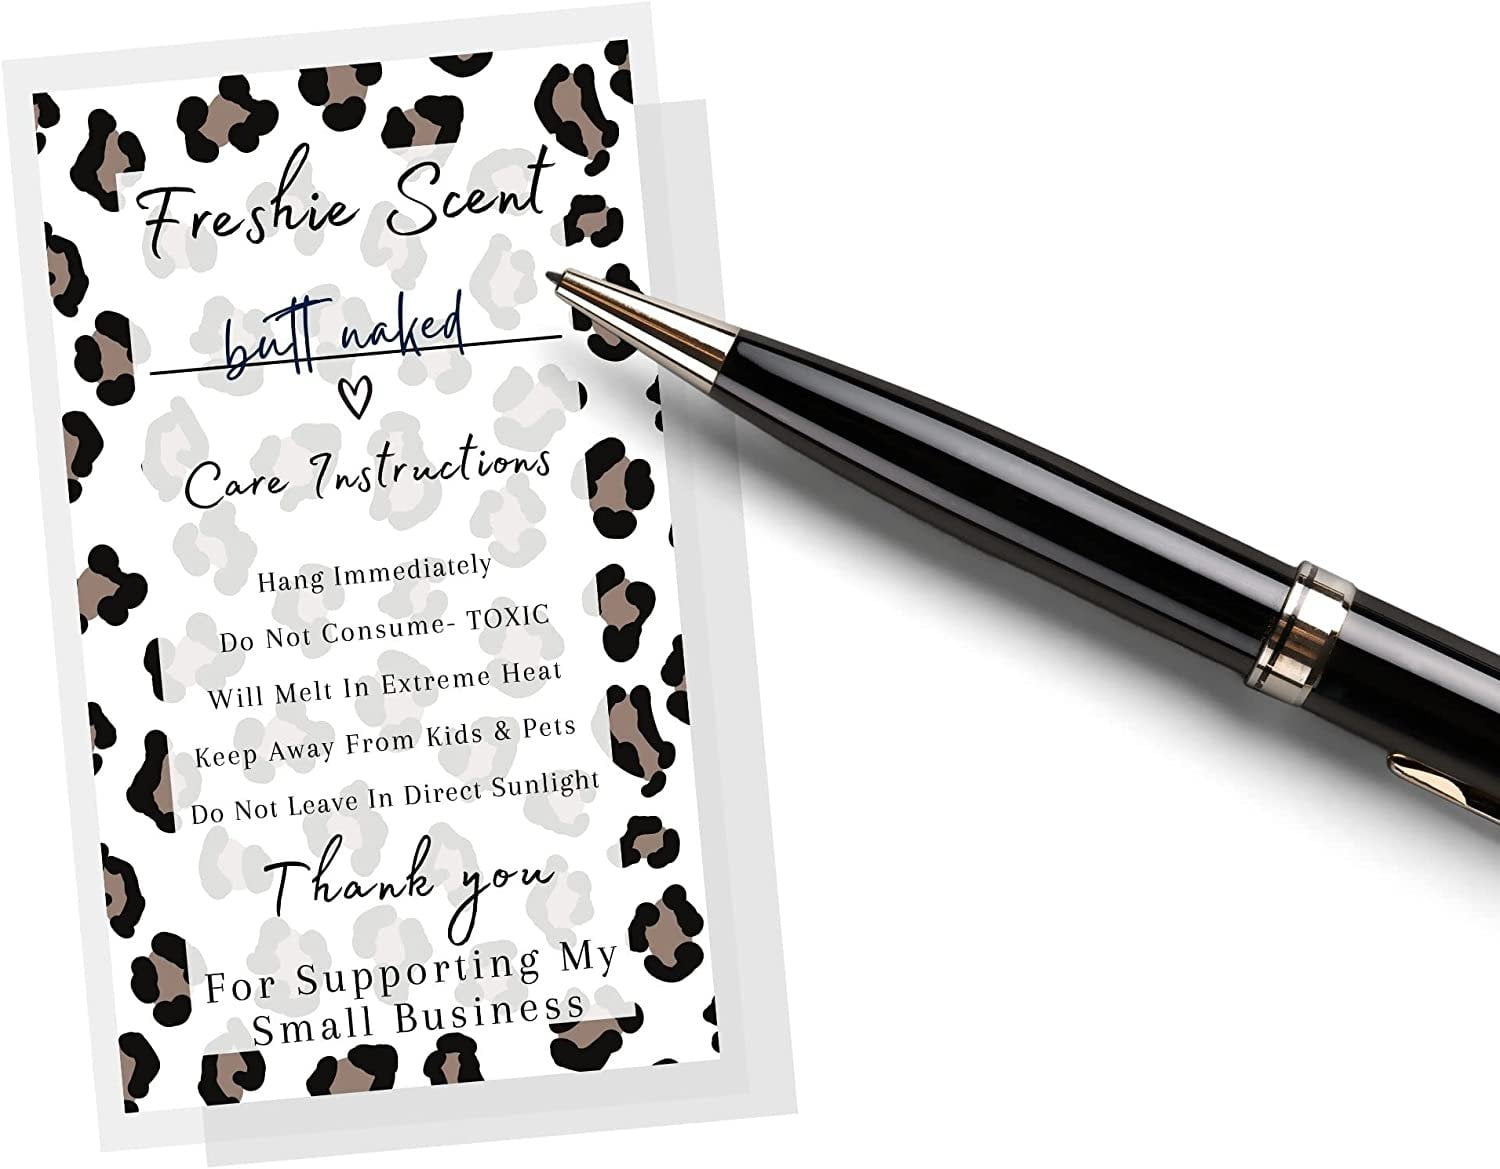 Freshie Scent
butt naked
Care Instructions
Hang Immediately
Do Not Consume- TOXIC
Will Melt In Extreme Heat
Keep Away From Kids & Pets
Do Not Leave In Direct Sunlight
Thank you
For Supporting My
Small Business